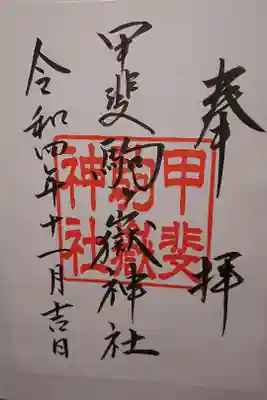 奉拝
甲斐駒ヶ嶽神社
甲斐
駒嶽
神社
令和四年十一月吉日